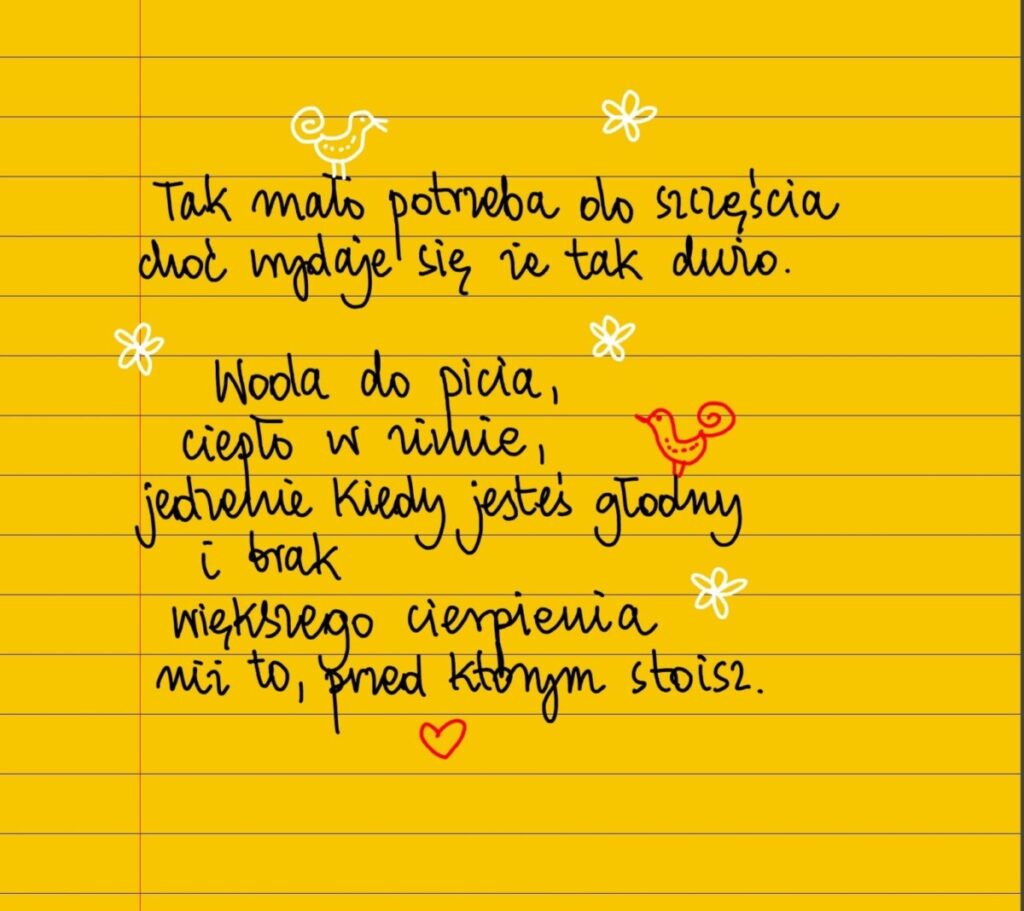 Tak mało potrzeba do szczęścia
choć wydaje się że tak dużo.
Woda do picia,
ciepło w zimie,
jedzenie kiedy jesteś głodny
i brak
większego cierpienia
niż to, przed którym stoisz.